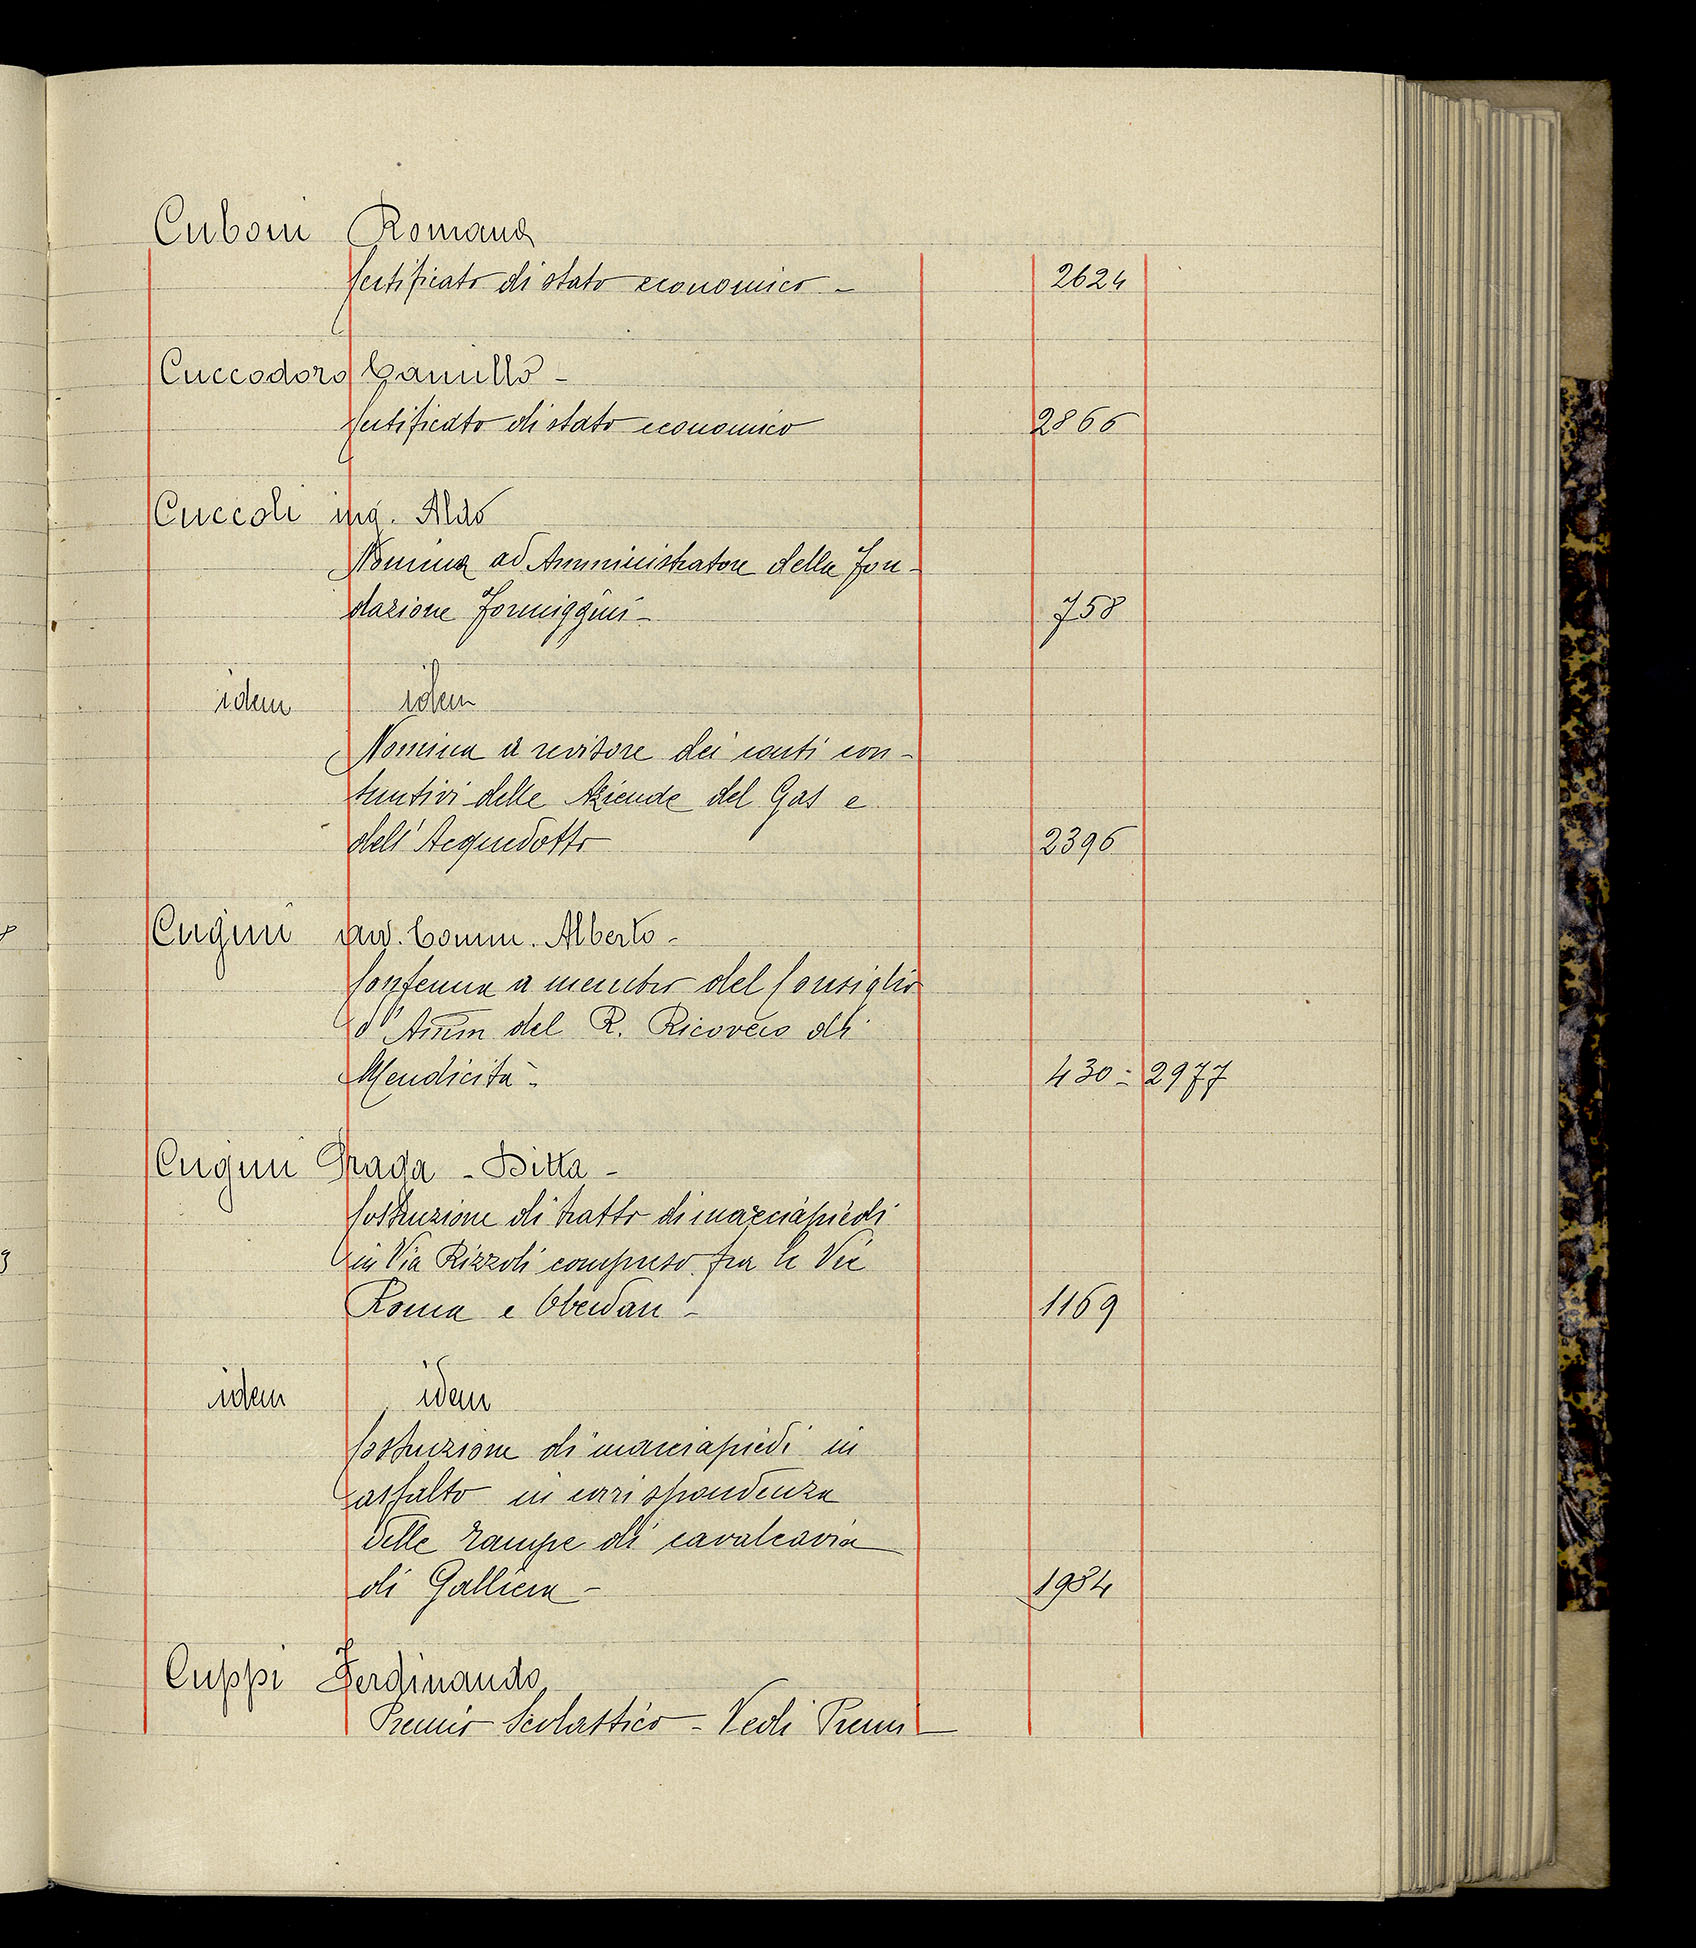 Cuboni Romana
Certificato di stato economico - 2624
Cuccodoro Camillo -
Certificato di stato economico 2866
Cuccoli ing. Aldo
Nomina ad Amministratore della Fon-
dazione Formiggini - 758
idem idem
Nomina a revisore dei conti con-
suntivi delle Aziende del Gas e
dell'Acquedotto 2396
Cugini avv. Comm. Alberto -
Conferma a membro del Consiglio
d'Amm del R. Ricovero di
Mendicità - 430 = 2977
Cugini Praga - Ditta -
Costruzione di tratto di marciapiedi
in Via Rizzoli compreso fra le Vie
Roma e Oberdan - 1169
idem idem
Costruzione di marciapiedi in
asfalto in corrispondenza
delle rampe di cavalcavia
di Galliera - 1984
Cuppi Ferdinando
Premio Scolastico - Vedi Premi -